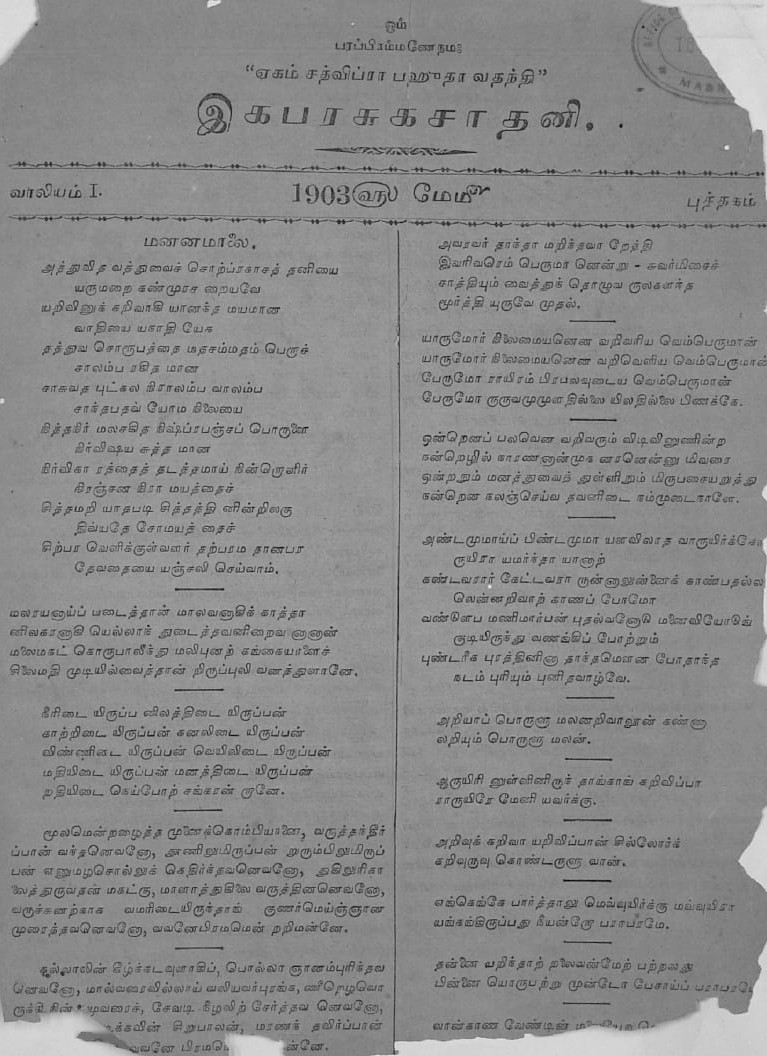 ஓம்
பரப்பிரம்மணேநம:
"ஏகம் சத்விப்ரா பஹுதா வதந்தி"
இகபரசுகசாதனி.
வாலியம் I.
1903 ௵ மேமீ
புத்தகம்
மனனமாலை.
அத்துவித வத்துவைச் சொற்ப்ரகாசத் தனியை
யருமறை கண்முரச றையவே
யறிவினுக் கறிவாகி யானந்த மயமான
வாதியை யநாதி யேக
தத்துவ சொரூபத்தை மதசம்மதம் பெருச்
சாலம்ப ரகித மான
சாசுவத புட்கல நிராலம்ப வாலம்ப
சாந்தபதவ் யோம நிலையை
நித்தநிர் மலசகித நிஷ்ப்ரபஞ்சப் பொருளை
நிர்விஷய சுத்த மான
நிர்விகா ரத்தைத் தடத்தமாய் நின்றொளிர்
நிரஞ்சன நிரா மயத்தைச்
சித்தமறி யாதபடி சித்தத்தி னின்றிலகு
திவ்யதே சோமயத் தைச்
சிற்பர வெளிக்குள்வளர் தற்பரம தானபர
தேவதையை யஞ்சலி செய்வாம்.
மலரயனாய்ப் படைத்தான் மாலவனாகிக் காத்தா
னிலகரனாகி யெல்லாங் துடைத்தவனிறைவ னானான்
மலைமகட் கொருபாலீந்து மலிபுனற் கங்கையாளைச்
சிலைமதி முடியில்வைத்தான் றிருப்புலி வனத்துளானே.
நீரிடை யிருப்ப னிலத்திடை யிருப்பன்
காற்றிடை யிருப்பன் கனலிடை யிருப்பன்
விண்ணிடை யிருப்பன் வெயிலிடை யிருப்பன்
மதியிடை யிருப்பன் மனத்திடை யிருப்பன்
றதியிடை நெய்போற் சங்கரன் றானே.
மூலமென்றழைத்த முனைக்கொம்பியானை, வருத்தந்தீர்
ப்பான் வந்தனெவனோ, தூணினுமிருப்பன் றுரும்பினுமிருப்
பன் எனுமழசொல்லுக் கெதிர்ந்தவனெவனோ,
வருச்சுனற்காக வமரிடையிருந்தாங் குணர்மெய்ஞ்ஞான
முரைத்தவனெவனோ, வவனேபிரமமென் றறிமன்னே.
கல்லாலின் கீழ்க்கடவுளாகிப், பொல்லா ஞானம்புரிந்தவ
னெவனோ, மால்வரைவில்லாய் வலியவர்புரங்க,
மூவரைச், சேவடி நீழலிற் சேர்த்தவ னெவனோ,
சிறுபாலன், மரணந் தவிர்ப்பான்
அவரவர் தாந்தா மறிந்தவா றேத்தி
இவரிவரெம் பெருமா னென்று - சுவர்மிசைச்
சாத்தியும் வைத்துந் தொழுவ ருலகளந்த
மூர்த்தி யுருவே முதல்.
யாருமோர் நிலைமையனென வறிவரிய வெம்பெருமான்
யாருமோர் நிலைமையனென வறிவெளிய வெம்பெருமான்
பேருமோ ராயிரம் பிறபலவுடைய வெம்பெருமான்
பேருமோ ருருவமுமுளதில்லை யிலதில்லை பிணக்கே.
ஒன்றெனப் பலவென வறிவரும் வடிவினுணின்ற
நன்றெழில் நாரணனான்முக னரனென்னு மிவரை
ஒன்றநும் மனத்துவைத் துள்ளிநும் மிருபசையறுத்து
நன்றென நலஞ்செய்வ தவனிடை நம்முடைநாளே.
அண்டமுமாய்ப் பிண்டமுமா யளவிலாத வாருயிர்க்கோ
ருயிரா யமர்ந்தா யானாற்
கண்டவரார் கேட்டவரா ருன்னாலுன்னைக் காண்பதல்ல
லென்னறிவாற் காணப் போமோ
வண்டுளப மணிமார்பன் புதல்வனோடு மனைவியோடுங்
குடியிருந்து வணங்கிப் போற்றும்
புண்டரிக புரத்தினினா தாந்தமௌன போதாந்த
நடம் புரியும் புனிதவாழ்வே.
அறியாப் பொருளு மலனறிவாலூன் கண்ணா
லறியும் பொருளு மலன்.
ஆருயிரி னுள்ளினிருந் தாங்காங் கறிவிப்பா
ராருயிரே மேனி யவர்க்கு.
அறிவுக் கறிவா யறிவிப்பான் சில்லோர்க்
கறிவுருவு கொண்டருளு வான்.
எங்கெங்கே பார்த்தாலு மெவ்வுயிர்க்கு மவ்வுயிரா
யங்கங்கிருப்பது நீயன்றோ பராபரமே.
தன்னை யறிந்தாற் றலைவன்மேற் பற்றலது
பின்னை யொருபற்று முண்டோ பேசாய்ப் பராபரமே
வான்காண வேண்டின்